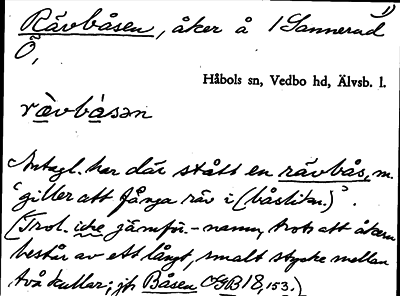 Rävbåsen, åker å 1 Sannerud 1)
Ö,
Håbols sn, Vedbo hd, Älvsb. l.
rävbåsen
Antagl. har där stått en rävbås, m.
'giller att fånga räv i (båslikn.)'.
(Trol. icke jämför.-namn, trots att åkern
består av ett långt, smalt stycke mellan
två kullar; jfr Båsen OGB 18, 153.)